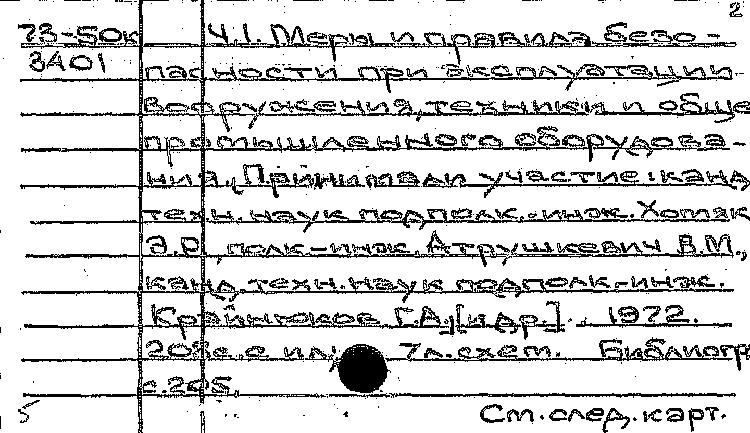 2
73-50к Ч.1. Меры и правила безо-
3401 пасности при эксплуатации
вооружения, техники и обще
промышленного оборудова-
ния. Принимали участие: канд
техн. наук подполк.-инж. Хотяк
Э.Р., полк.-инж. Атрушкевич В.М.,
канд. техн. наук подполк.-инж.
Крайнюков Г.А. [и др.]. 1972.
208с. с ил; 7л. схем. Библиогр
с.205.
5 См. след. карт.